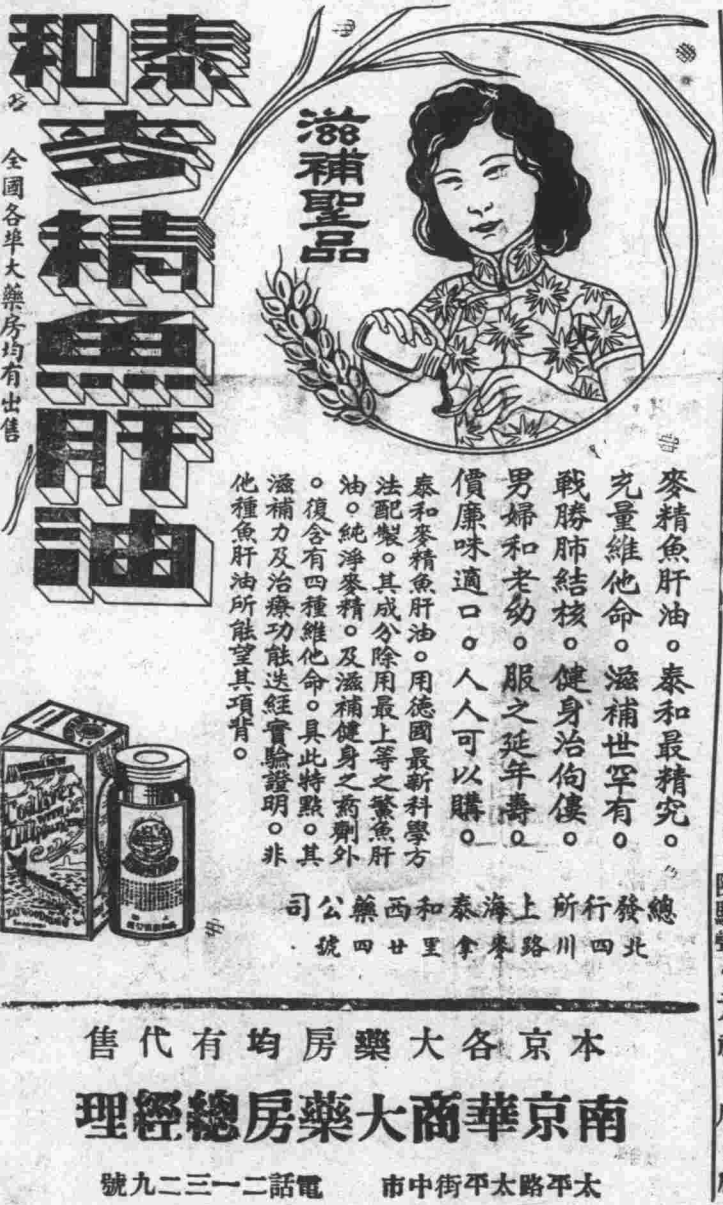 泰和
麥精魚肝油
全國各埠大藥房均有出售
滋補聖品
麥精魚肝油。泰和最精究。
充量維他命。滋補世罕有。
戰勝肺結核。健身治佝僂。
男婦和老幼。服之延年壽。
價廉味適口。人人可以購。
泰和麥精魚肝油。用德國最新科學方
法配製。其成分除用最上等之鱉魚肝
油。純淨麥精。及滋補健身之葯劑外
。復含有四種維他命。具此特點。其
滋補力及治療功能迭經實驗證明。非
他種魚肝油所能望其項背。
總發行所上海泰和西藥公司
北四川路麥拿里廿四號
Codliver
Oil
本京各大藥房均有代售
南京華商大藥房總經理
太平路太平街中市 電話二一三二九號